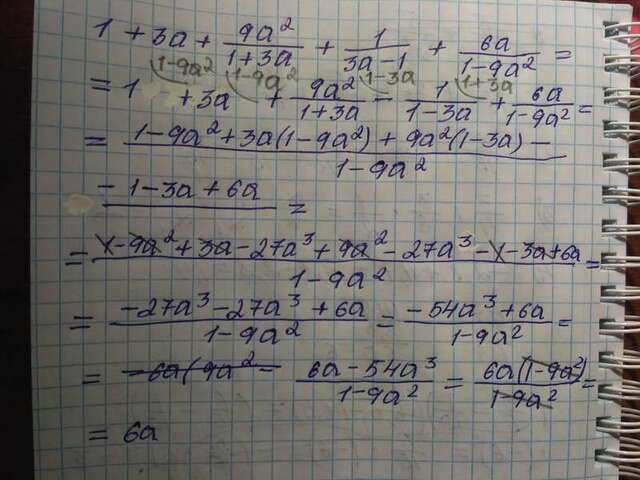 1 + 3a + 9a²/(1+3a) + 1/(3a-1) + 6a/(1-9a²) =
1-9a² 1-9a² 1-3a 1+3a
= 1 + 3a + 9a²/(1+3a) - 1/(1-3a) + 6a/(1-9a²) =
= (1-9a²+3a(1-9a²)+9a²(1-3a)- / 1-9a²
-1-3a+6a =
= (1-9a²+3a-27a³+9a²-27a³-1-3a+6a)/(1-9a²) =
= (-27a³-27a³+6a)/(1-9a²) = (-54a³+6a)/(1-9a²) =
= -6a(9a²- (6a-54a³)/(1-9a²) = 6a(1-9a²)/(1-9a²) =
= 6a